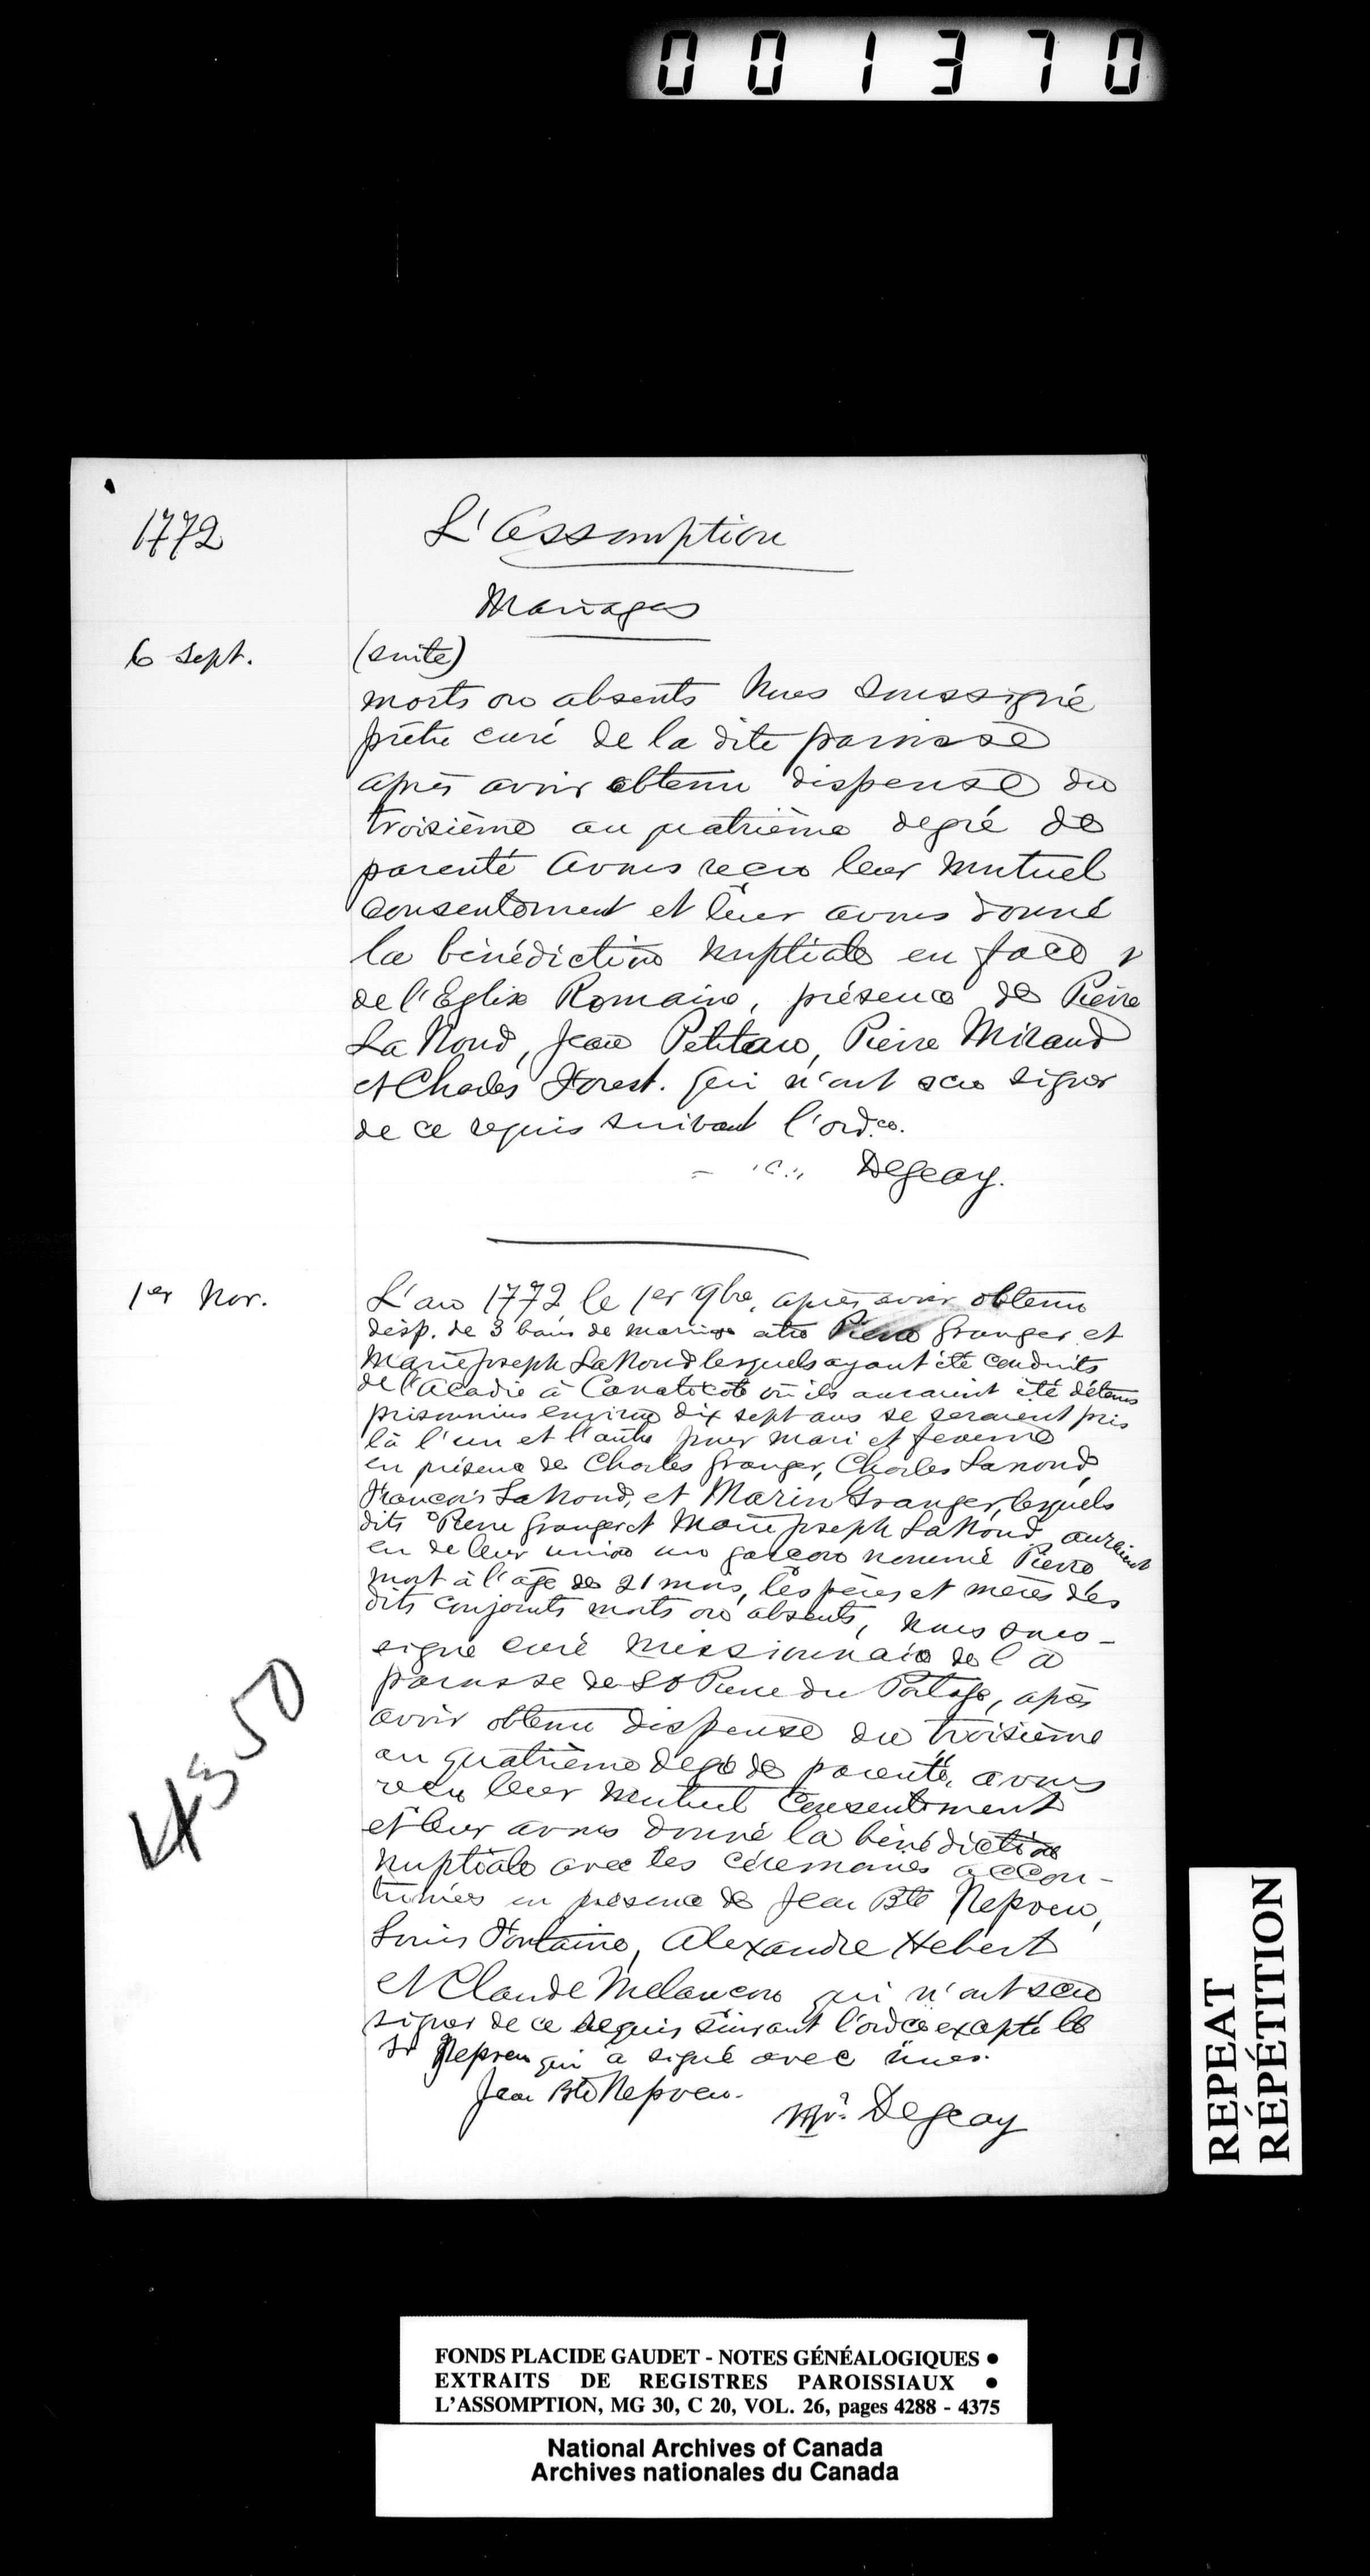 001370
1772
L'Assomption
Mariages
6 Sept.
(suite)
morts ou absents Nous Soussigné
prêtre curé de la dite paroisse
après avoir obtenu dispense du
troisième au quatrième degré de
parenté avons recu leur mutuel
consentement et leur avons donné
la bénédiction nuptiale en face
de l'Eglise Romaine, présence de Pierre
LaNoud, Jean Petiteau, Pierre Miraud
et Charles Forest. qui n'ont sceu signer
de ce requis suivant l'ordce.
Degeay.
1er Nov.
L'an 1772 le 1er 9bre, après avoir obtenu
disp. de 3 bans de mariage entre Pierre Granger et
Marie Joseph LaNoud lesquels ayant été conduits
de l'Acadie à Canatocote où ils auraient été détenus
prisonniers environ dix sept ans se seraient pris
là l'un et l'autre pour mari et femme
en présence de Charles Granger, Charles Lanoud,
François LaNoud, et Marin Granger, lesquels
dits Pierre Granger et Marie Joseph LaNoud auraient
eu de leur union un garçon nommé Pierre
mort à l'âge de 21 mois, les pères et mères des
dits conjoints morts ou absents, Nous sous-
signé curé missionnaire de la
paroisse de St Pierre du Portage, après
avoir obtenu dispense du troisième
au quatrième degré de parenté, avons
recu leur mutuel consentement
et leur avons donné la bénédiction
nuptiale avec les cérémonies accou-
tumées en présence de Jean Bte Nepveu,
Louis Fontaine, Alexandre Hebert
et Claude Melancon qui n'ont sceu
signer de ce requis suivant l'ordce excepté le
Sr Nepveu qui a signé avec nous.
Jean Bte Nepveu.
Degeay
4350
REPEAT
RÉPÉTITION
FONDS PLACIDE GAUDET - NOTES GÉNÉALOGIQUES •
EXTRAITS DE REGISTRES PAROISSIAUX •
L'ASSOMPTION, MG 30, C 20, VOL. 26, pages 4288 - 4375
National Archives of Canada
Archives nationales du Canada